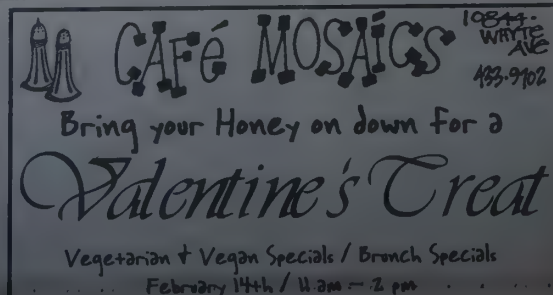 CAFé MOSAÏCS
10844 - WHYTE AVE
433-9702
Bring your Honey on down for a
Valentine's Treat
Vegetarian & Vegan Specials / Brunch Specials
February 14th / 11 am - 2 pm